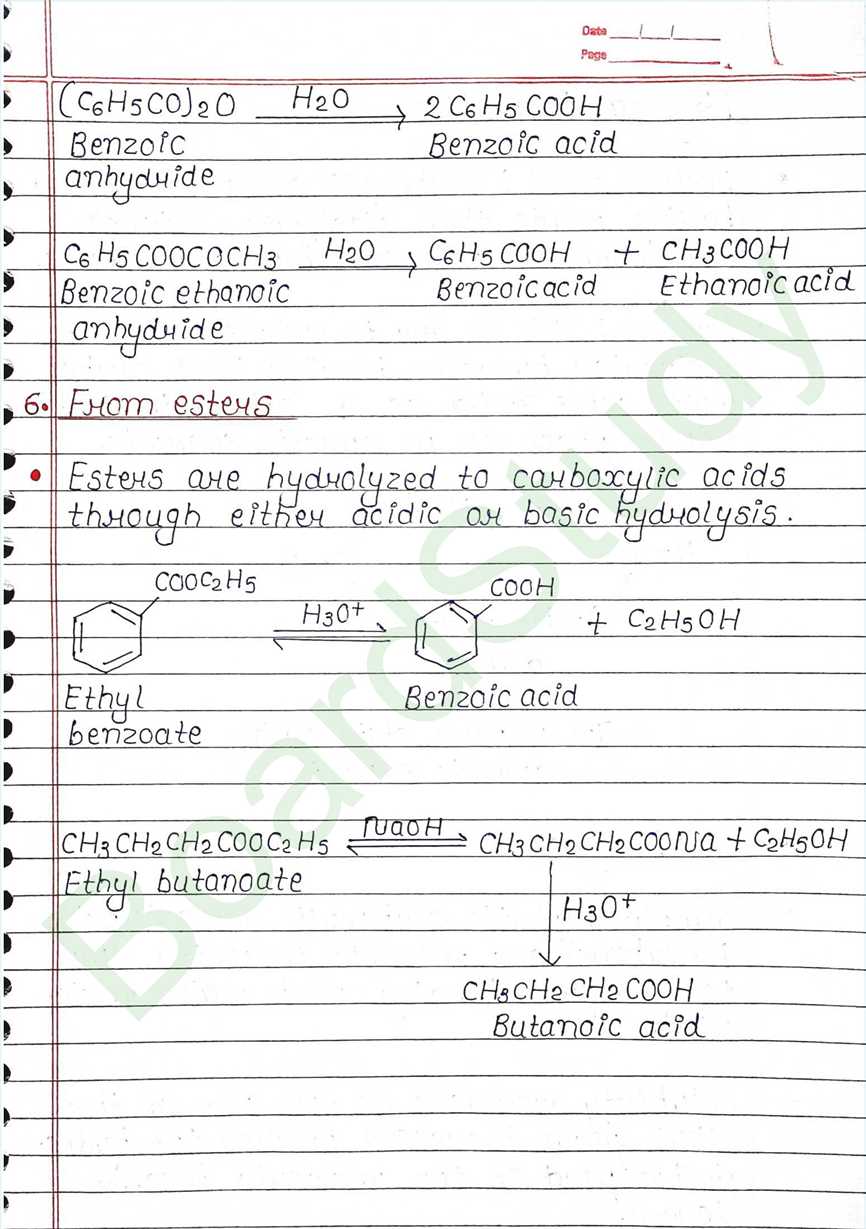 Date __/__/__
Page
(C6H5CO)2O H2O → 2C6H5COOH
Benzoic Benzoic acid
anhydride
C6H5COOCOCH3 H2O → C6H5COOH + CH3COOH
Benzoic ethanoic Benzoic acid Ethanoic acid
anhydride
6. From esters
• Esters are hydrolyzed to carboxylic acids
through either acidic or basic hydrolysis.
COOC2H5 COOH
H3O+ ⇌ + C2H5OH
Ethyl Benzoic acid
benzoate
CH3CH2CH2COOC2H5 NaOH ⇌ CH3CH2CH2COONa + C2H5OH
Ethyl butanoate
↓ H3O+
CH3CH2CH2COOH
Butanoic acid
BoardStudy